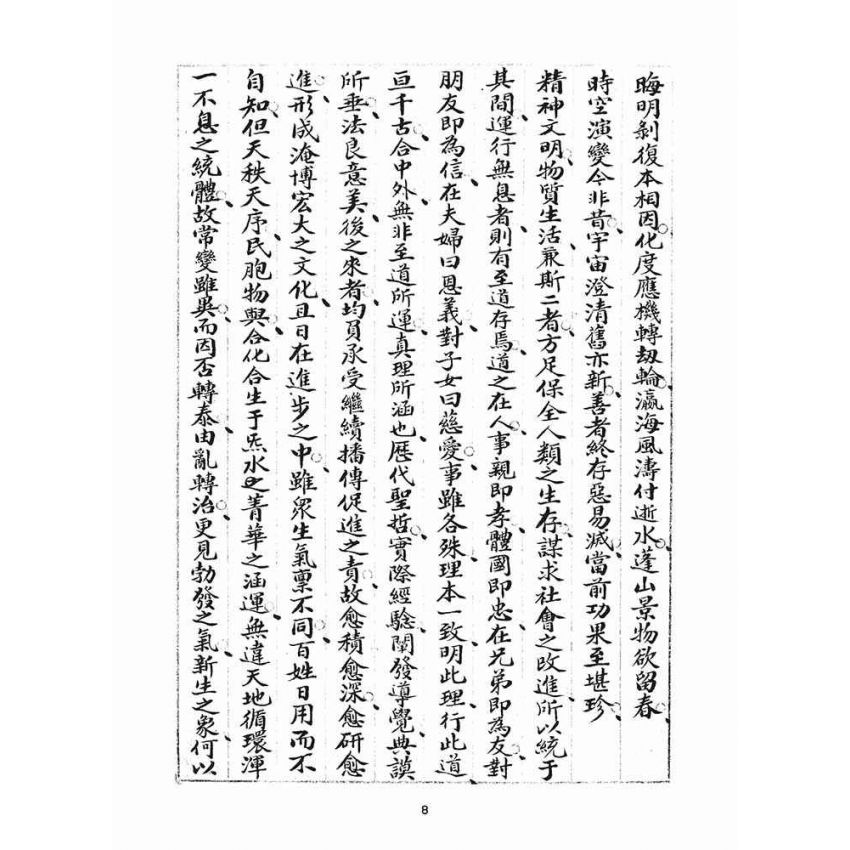 晦明剝復本相因。化度應機轉劫輪、瀛海風濤付逝水。蓬山景物欲留春、
時空演變今非昔、宇宙澄清舊亦新、善者終存惡易滅、當前功果至堪珍、
精神文明、物質生活、兼斯二者、方足保全人類之生存、謀求社會之改進、所以統于
其間、運行無息者、則有至道存焉、道之在人、事親即孝、體國即忠、在兄弟即為友、對
朋友即為信、在夫婦曰恩義、對子女曰慈愛、事雖各殊、理本一致、明此理、行此道、
亘千古、合中外、無非至道所運、真理所涵也、歷代聖哲、實際經驗、闡發導覺、典謨
所垂、法良意美、後之來者、均負承受繼續播傳促進之責、故愈積愈深、愈研愈
進、形成淹博宏大之文化、且日在進步之中、雖眾生氣稟不同、百姓日用而不
自知、但天秩天序、民胞物與、合化合生于炁水、㞢菁華之涵運、無違天地循環、渾
一不息之統體、故常變雖異、而因否轉泰、由亂轉治、更見勃發之氣、新生之象、何以
8